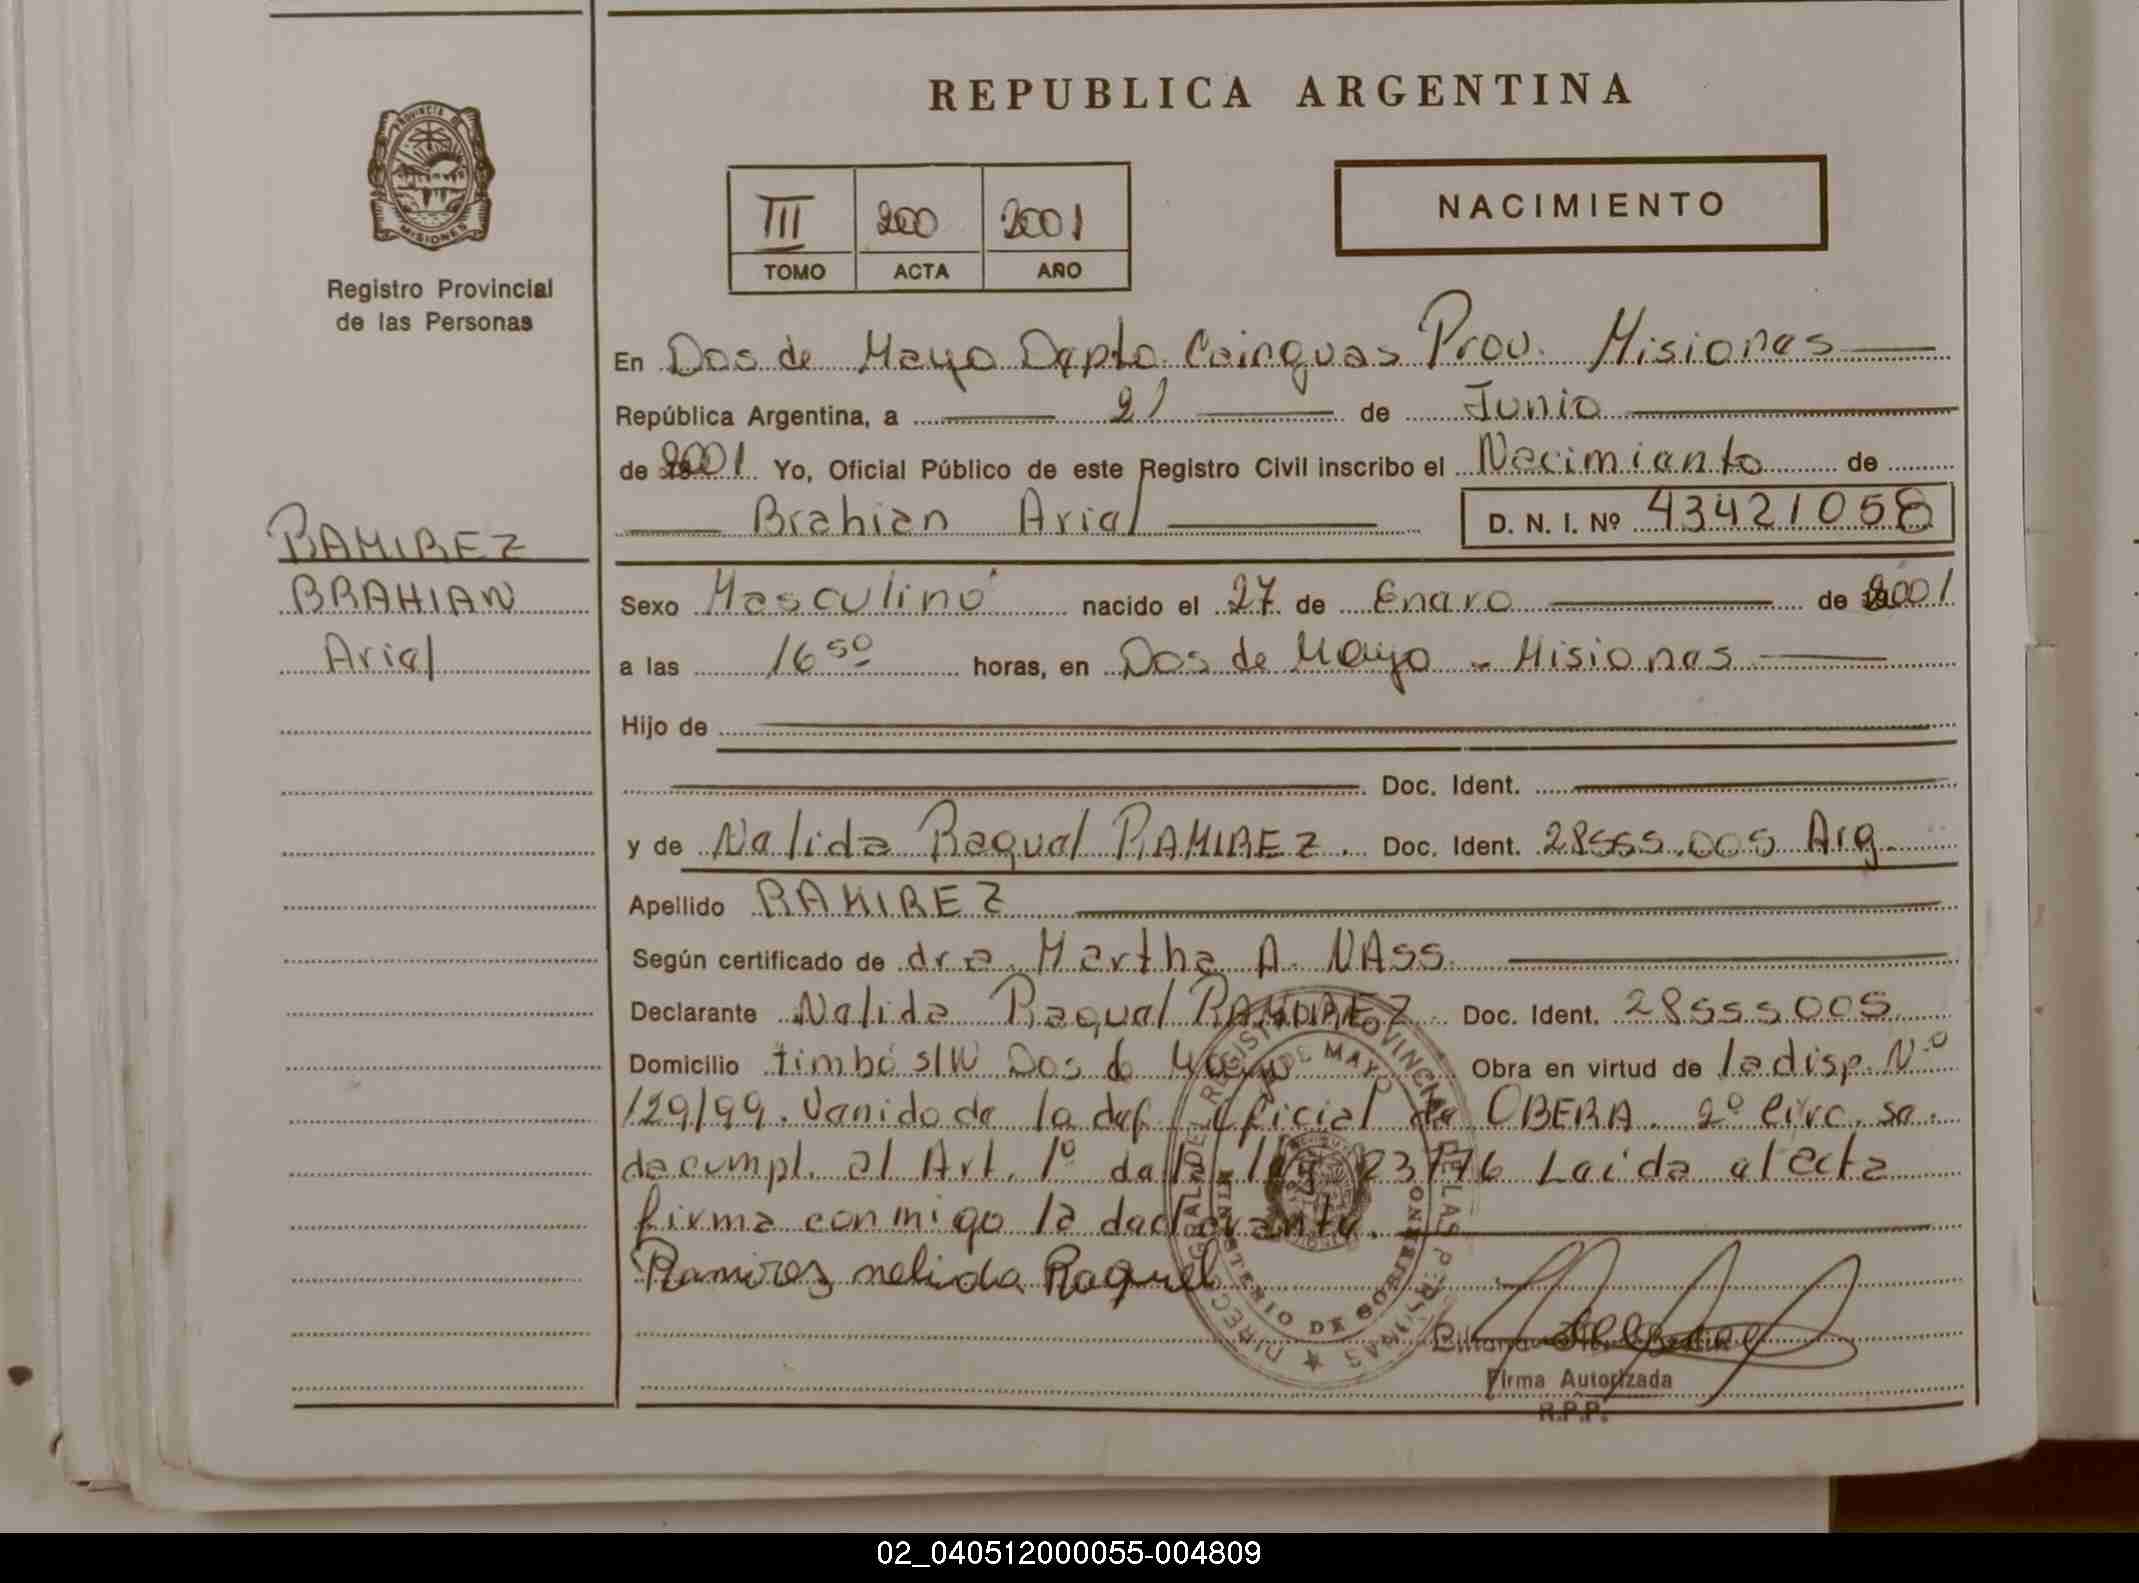 REPUBLICA ARGENTINA
PROVINCIA DE
MISIONES
Registro Provincial
de las Personas
III 200 2001
TOMO ACTA AÑO
NACIMIENTO
En Dos de Mayo Depto. Cainguas Prov. Misiones
República Argentina, a 21 de Junio
de 2001 Yo, Oficial Público de este Registro Civil inscribo el Nacimiento de
Brahian Ariel D. N. I. Nº 43421058
RAMIREZ
BRAHIAN
Ariel
Sexo Masculino nacido el 27 de Enero de 2001
a las 16 50 horas, en Dos de Mayo - Misiones
Hijo de
Doc. Ident.
y de Nelida Raquel RAMIREZ. Doc. Ident. 28555.005 Arg.
Apellido RAMIREZ
Según certificado de dra. Martha A. NASS.
Declarante Nelida Raquel RAMIREZ Doc. Ident. 28555005
Domicilio timbó s/N Dos de Mayo Obra en virtud de la disp. Nº
129/99. Venido de la def. Oficial de OBERA. 2º circ. se.
da cumpl. al Art. 1º de la ley 23776 Leida el acta
firma conmigo la declarante.
Ramirez nelida Raquel
DIRECC. GRAL. DEL REGISTRO PROVINCIAL DE LAS PERSONAS
DOS DE MAYO
MINISTERIO DE GOBIERNO
Liliana
Firma Autorizada
R.P.P.
02_040512000055-004809